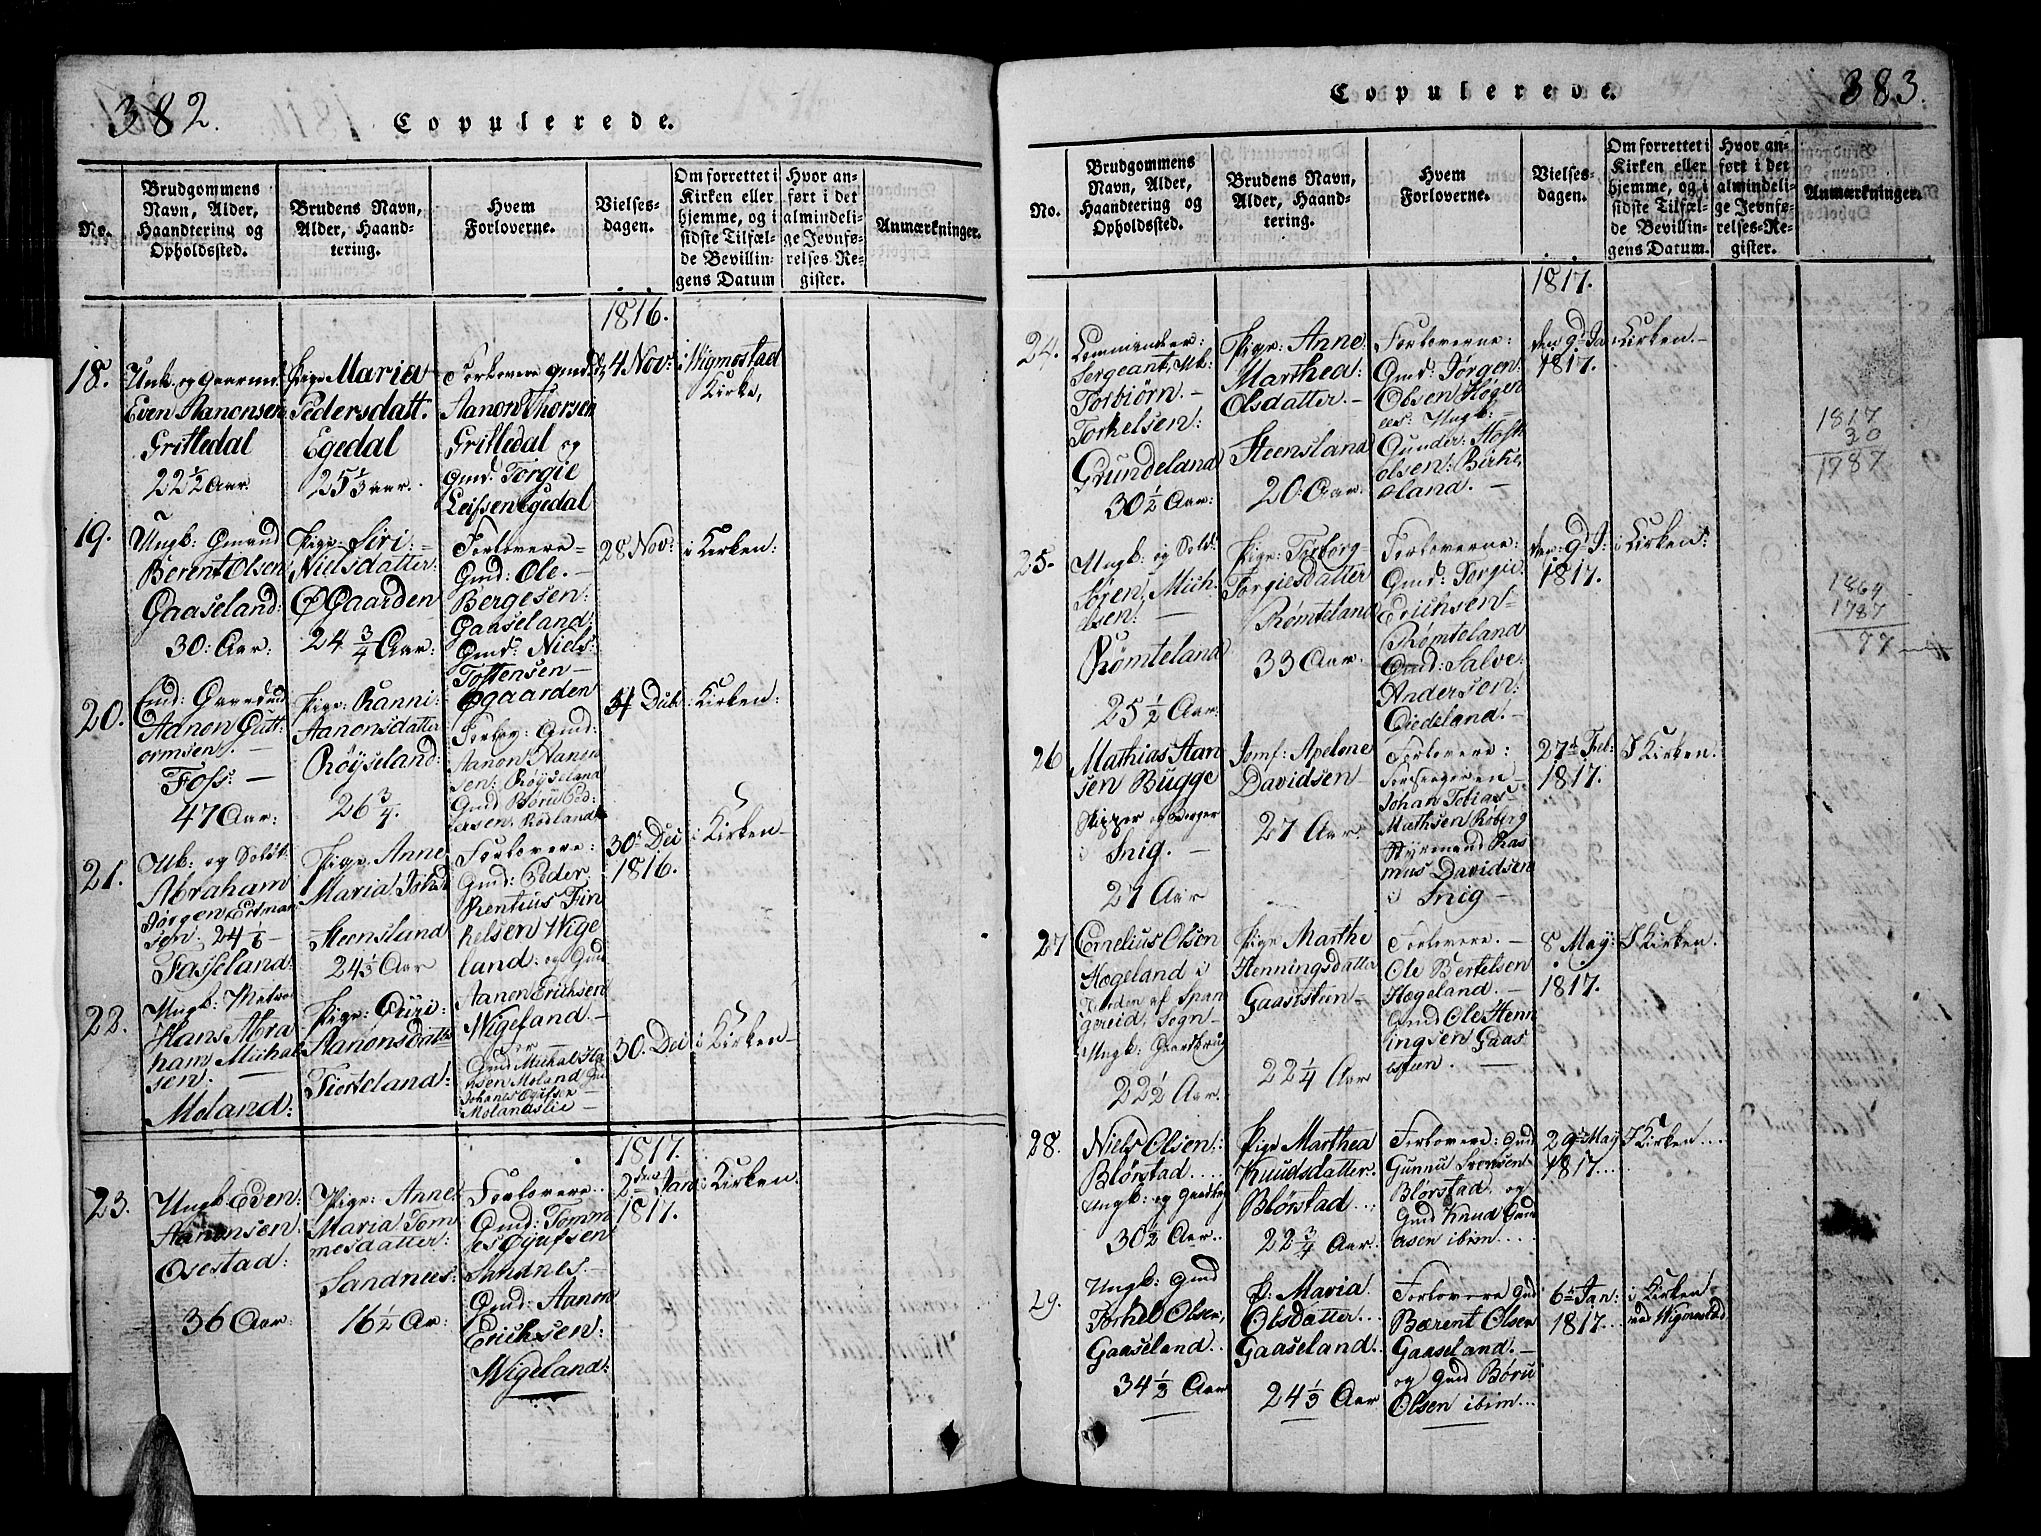 382.
Copulerede.
No.
Brudgommens
Navn, Alder,
Haandtering og
Opholdssted.
Brudens Navn,
Alder, Haand-
tering.
Hvem
Forloverne.
Vielses-
dagen.
Om forrettet i
Kirken eller
hjemme, og i
sidste Tilfæl-
de Bevillin-
gens Datum
Hvor an-
ført i det
almindeli-
ge Jevnfø-
relses-Re-
gister.
Anmærkninger.
1816.
18.
Unk. og Gaarmd
Even Aanonsen
Grittedal
22 1/2 Aar.
Pige Maria
Pedersdatt.
Egedal
25 1/3 aar.
Forlovere gmd:
Aanon Thorsen
Grittedal og
Gmd. Torgie
Leifsen Egedal
4 Nov:
i Wigmostad
Kirke,
19.
Ungk: Gmand
Berent Olsen
Gaaseland:
30: Aar:
Pige: Siri
Nielsdatter:
Øgaarden
24 3/4 Aar:
Forlovere
Gmd: Ole.
Bergesen:
Gaaseland:
Gmd: Niels:
Tostensen
Øgaarden
28 Nov:
i Kirken:
20.
Aanon Gutt-
ormsen.
Foss:
47 Aar:
Pige: Ranni:
Aanonsdatter
Røyseland:
26 3/4.
Forlov: Gmd:
Aanon Aanon
sen: Røyseland
Gmd Børu Ped:
ersen: Rødland
4 Deb:
i Kirken:
21.
Uk: og Soldt.
Abraham
Jørgen Ertman
sen: 24 1/6
Fasseland:
Pige Anne
Maria Joh:
Steensland
24 1/3 Aar
Forlovere:
Gmd: Peder
Rentius Fin
kelsen Wige
land: og Gmd
Aanon Erichsen
Wigeland.
30t Dec
1816.
i Kirken
22.
Hans Abra
ham Michal
sen.
Moland:
Pige: Guri:
Aanonsdatt:
Fiorteland:
Gmd Michal
sen Moland
Molandslie
30. Dec
i Kirken
1817.
23.
Ungk Even:
Aanonsen
Osestad:
36 Aar:
Pige: Anne
Maria Tom
mesdatter:
Sandnees:
16 1/2 Ar:
Forlovere
Gmd: Tomm
es Gjufsen
Sandnes.
Gmd: Aanon
Erichsen:
Wigeland:
2den Jan
1817.
i Kirken:
383.
Copulerede.
No.
Brudgommens
Navn, Alder,
Haandtering og
Opholdssted.
Brudens Navn,
Alder, Haand-
tering.
Hvem
Forloverne.
Vielses-
dagen.
Om forrettet i
Kirken eller
hjemme, og i
sidste Tilfæl-
de Bevillin-
gens Datum.
Hvor an-
ført i det
almindeli-
ge Jevnfø-
relses-Re-
gister.
Anmærkninger.
1817.
24.
Commandeer:
Sergeant, Uk:
Torbiørn.
Torkelsen:
Grundeland
30 1/2 Aar:
Pige: Anne
Marthea:
Olsdatter.
Steensland
20: Aar.
Forloverne:
Gmd: Jørgen:
Olsen Høgen
ees: Ungk:
Gunder: Host
olsen: Birke
oland.
den 9d Ja
1817.
i Kirken.
1817
30
1787
25.
Ungk: og Sold:
Søren: Mich-
elsen:
Rømteland
25 1/2 Aar:
Pige: Torborg
Torgiesdatter
Rømteland
33 Aar.
Forloverne:
Gmd: Torgie
Erichsen
Rømteland
Gmd: Salve:
Andersen:
Giedeland.
den: 9d J:
1817.
i Kirken:
1864
1787
77
26
Mathias Aan
sen Bugge
Skipper og Borger
i Snig.
27 Aar
Jomf: Apelone
Davidsen
27 Aar
Forlovere:
Johan Tobias
Mathsen Roberg
Styrmand Ras
mus Davidsen
i Snig
27d Feb:
1817.
I Kirken.
27
Cornelius Olsen
Høgeland i
Fierden af Span
gereid, Sogn
Ungk: Gaardbrug
22 1/2 Aar.
Pige Marthe
Henningsdatter
Gaasesteen
22 1/4 Aar
Forlovere.
Ole Bertelsen
Høgeland.
Gmd Ole Henn
ingsen Gaas
esteen.
8 May:
1817.
I Kirken.
28.
Niels Olsen:
Blørstad....
Ungk: og Gaardbr
30 1/2 Aar..
Pige Marthea
Knudsdatter.
Blørstad...
22 3/4 Aar.
Forlovere: Gmd
Gunnu Svensen
Blørstad og
Gmd Knud Gund
ersen ibim....
29 May
1817...
I Kirken...
29.
Ungk: Gmd
Torkel Olsen,
Gaaseland..
34 1/3 Aar
P: Maria
Olsdatter...
Gaaseland..
24 1/3 Aar
Forlovere Gmd
Bærent Olsen
Gaaseland.
og Gmd Børu
Olsen ibim...
6te Jan:
1817...
i Kirken
ved Wigmostad